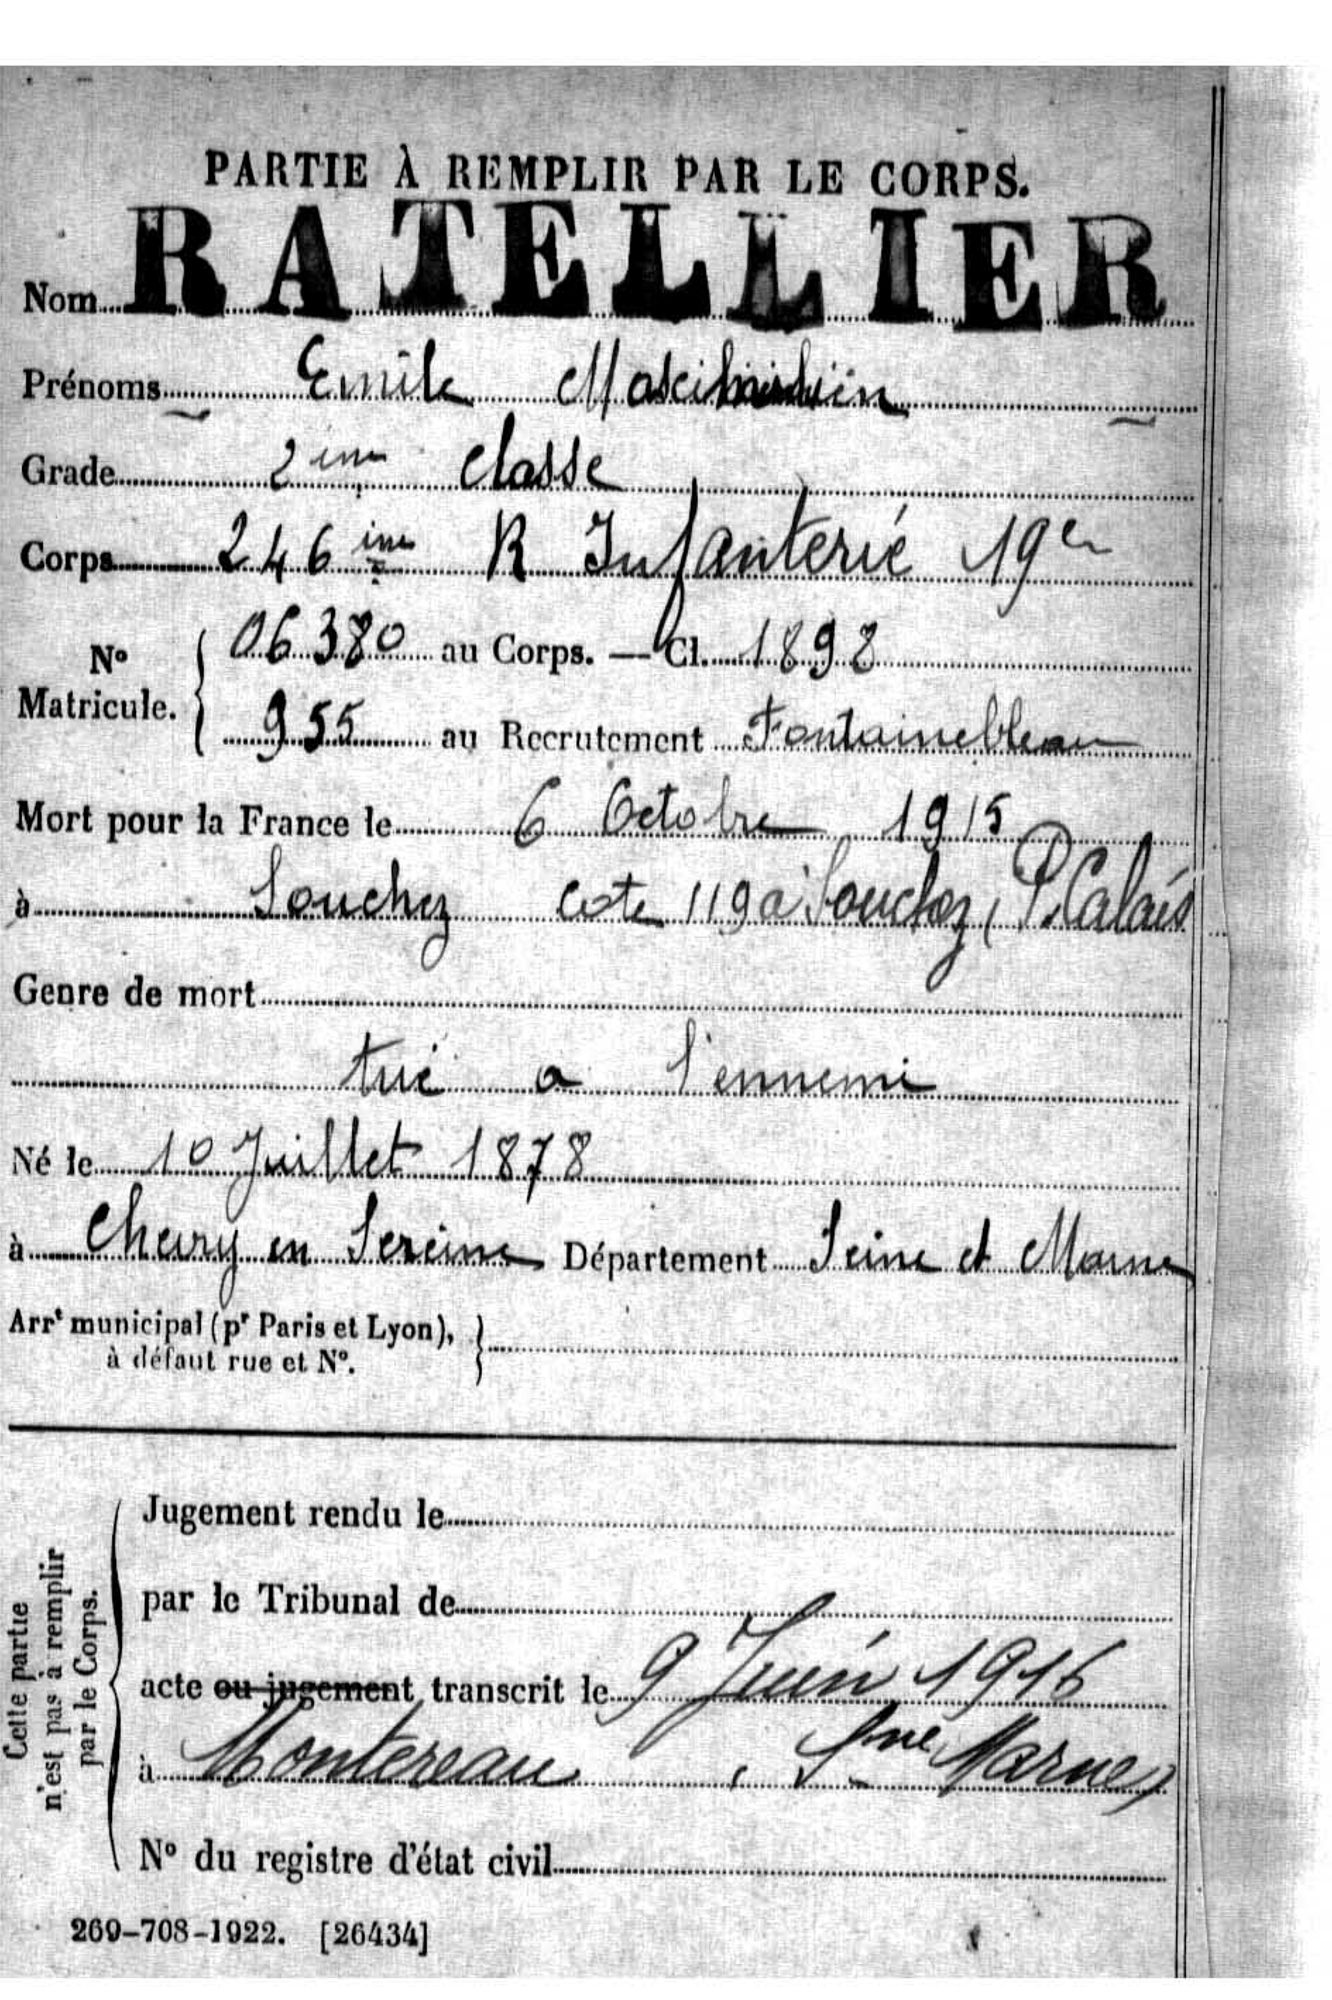 PARTIE À REMPLIR PAR LE CORPS.
Nom RATELLIER
Prénoms Emile
Grade 2ème classe
Corps 246ème R Infanterie 19e
N° Matricule. { 06380 au Corps. — Cl. 1898
955 au Recrutement Fontainebleau
Mort pour la France le 6 Octobre 1915
à Souchez cote 119 à Souchez, P. Calais
Genre de mort
tué a l'ennemi
Né le 10 Juillet 1878
à Chevry en Sereine Département Seine et Marne
Arrt municipal (pr Paris et Lyon), }
à défaut rue et N°.
Cette partie
n'est pas à remplir
par le Corps.
Jugement rendu le
par le Tribunal de
acte ou jugement transcrit le 9 Juin 1916
à Montereau, Sne Marne)
N° du registre d'état civil
269-708-1922. [26434]